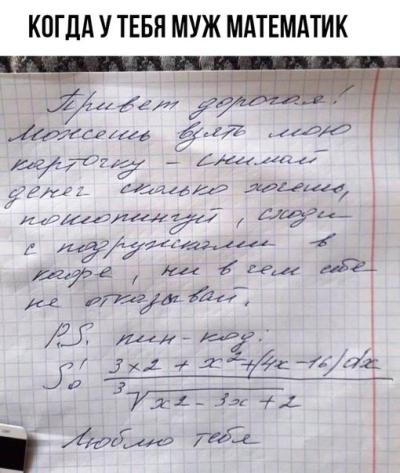 КОГДА У ТЕБЯ МУЖ МАТЕМАТИК
Привет дорогая!
Можешь взять мою
карточку - снимай
денег сколько хочешь,
пошопингуй, сходи
с подружками в
кафе, ни в чем себе
не отказывай.
P.S. пин-код:
∫₀¹ 3x2 + x²+(4x-16)dx
³√x2-3x+2
Люблю тебя